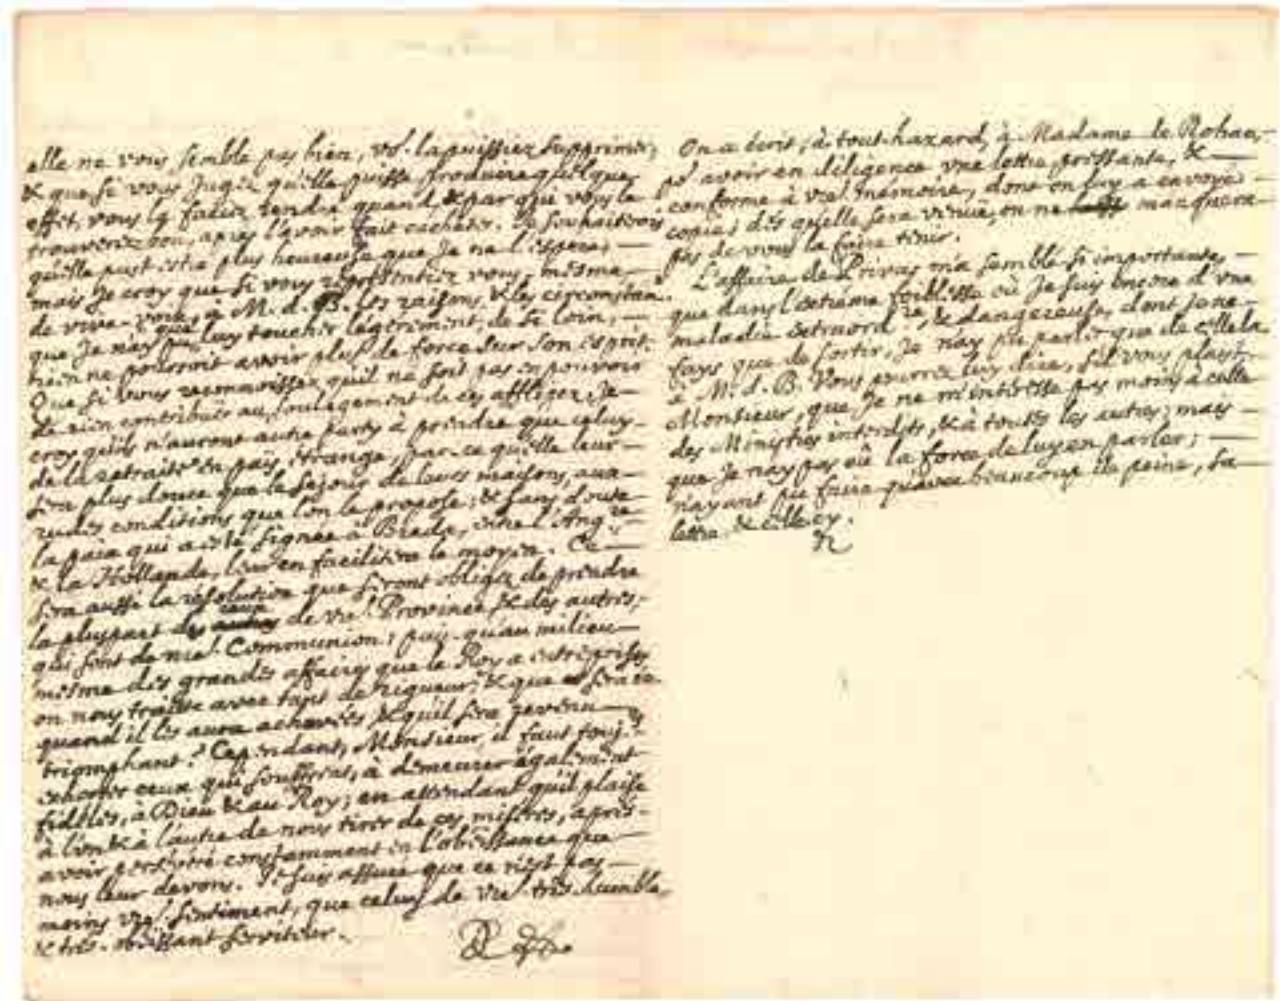 elle ne vous semble pas bien, vs. la puissiez supprimer,
& que si vous Jugez qu'elle puisse produire quelque
effet, vous luy faciez rendre quand, & par qui vous le
trouverez bon, apres l'avoir fait cacheter. Je souhaiterois
qu'elle pust estre plus heureuse que Je ne l'espere;
mais Je croy que si vous representiez vous-mesme
de vive-voix, à M. d. B. les raisons, & les circonstan.
que Je n'ay pu que luy toucher légèrement, de si loin,
rien ne pourroit avoir plus de force sur son esprit.
Que si vous reconnoissez qu'il ne soit pas en pouvoir
de rien contribuer au soulagement de ces affligez, Je
croy qu'ils n'auront autre party à prendre que celuy
de la retraite en païs étrange, par-ce qu'elle leur
sera plus douce que le sejour de leurs maisons, aux
rudes conditions que l'on le propose: & sans doute
la paix qui a esté signée à Breda, entre l'Angre
& la Hollande, leur en facilitera le moyen. Ce
sera aussi la résolution que seront obligez de prendre
la pluspart des ceux de vre. Province, & des autres,
qui sont de nre. Communion; puis-qu'au milieu
mesme des grandes affaires que le Roy a entreprises
on nous traitte avec tant de rigueur: & que sera-ce
quand il les aura achevées & qu'il sera revenu
triomphant? Cependant, Monsieur, il faut touj.rs
exhorter ceux qui souffrent, à demeurer également
fidelles, à Dieu & au Roy; en attendant qu'il plaise
à l'un & à l'autre de nous tirer de ces miseres, apres
avoir persévéré constamment en l'obeïssance que
nous leur devons. Je suis assuré que ce n'est pas
moins vre. sentiment, que celuy de vre. très-humble,
& très-obeïssant serviteur.
On a écrit, à tout-hazard, à Madame de Rohan,
pr. avoir en diligence une lettre pressante, &
conforme à vre. mémoire, dont on luy a envoyé
copie; dès qu'elle sera venuë, on ne manquera
pas de vous la faire tenir.
L'affaire de Privas m'a semblé si importante,
que dans l'extréme foiblesse où Je suis encore d'une
maladie extraord.re, & dangereuse, dont Je ne
fays que de sortir, Je n'ay pu parler que de celle la
à M. d. B. Vous pourrez luy dire, s'il vous plaist,
Monsieur, que Je ne m'intéresse pas moins à celle
des Ministres interdits, & à toutes les autres; mais
que Je n'ay pas eû la force de luy en parler;
n'ayant pu faire qu'avec beaucoup de peine, sa
lettre, & celle cy.